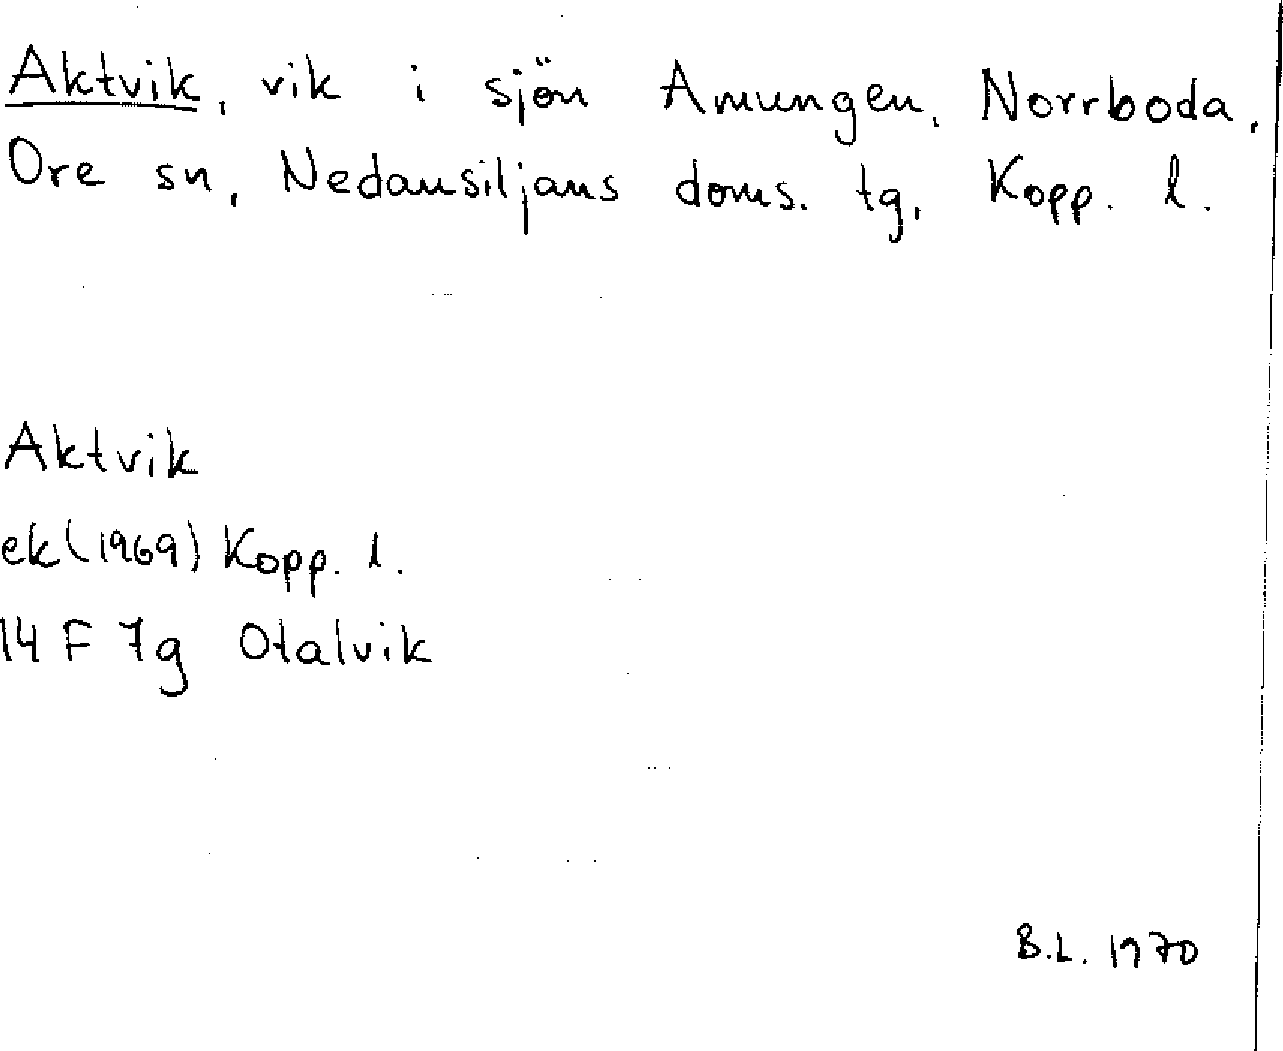 Aktvik, vik i sjön Amungen, Norrboda,
Ore sn, Nedansiljans doms. tg, Kopp. l.
Aktvik
ek (1969) Kopp. l.
14 F 7g Otalvik
B.L. 1970